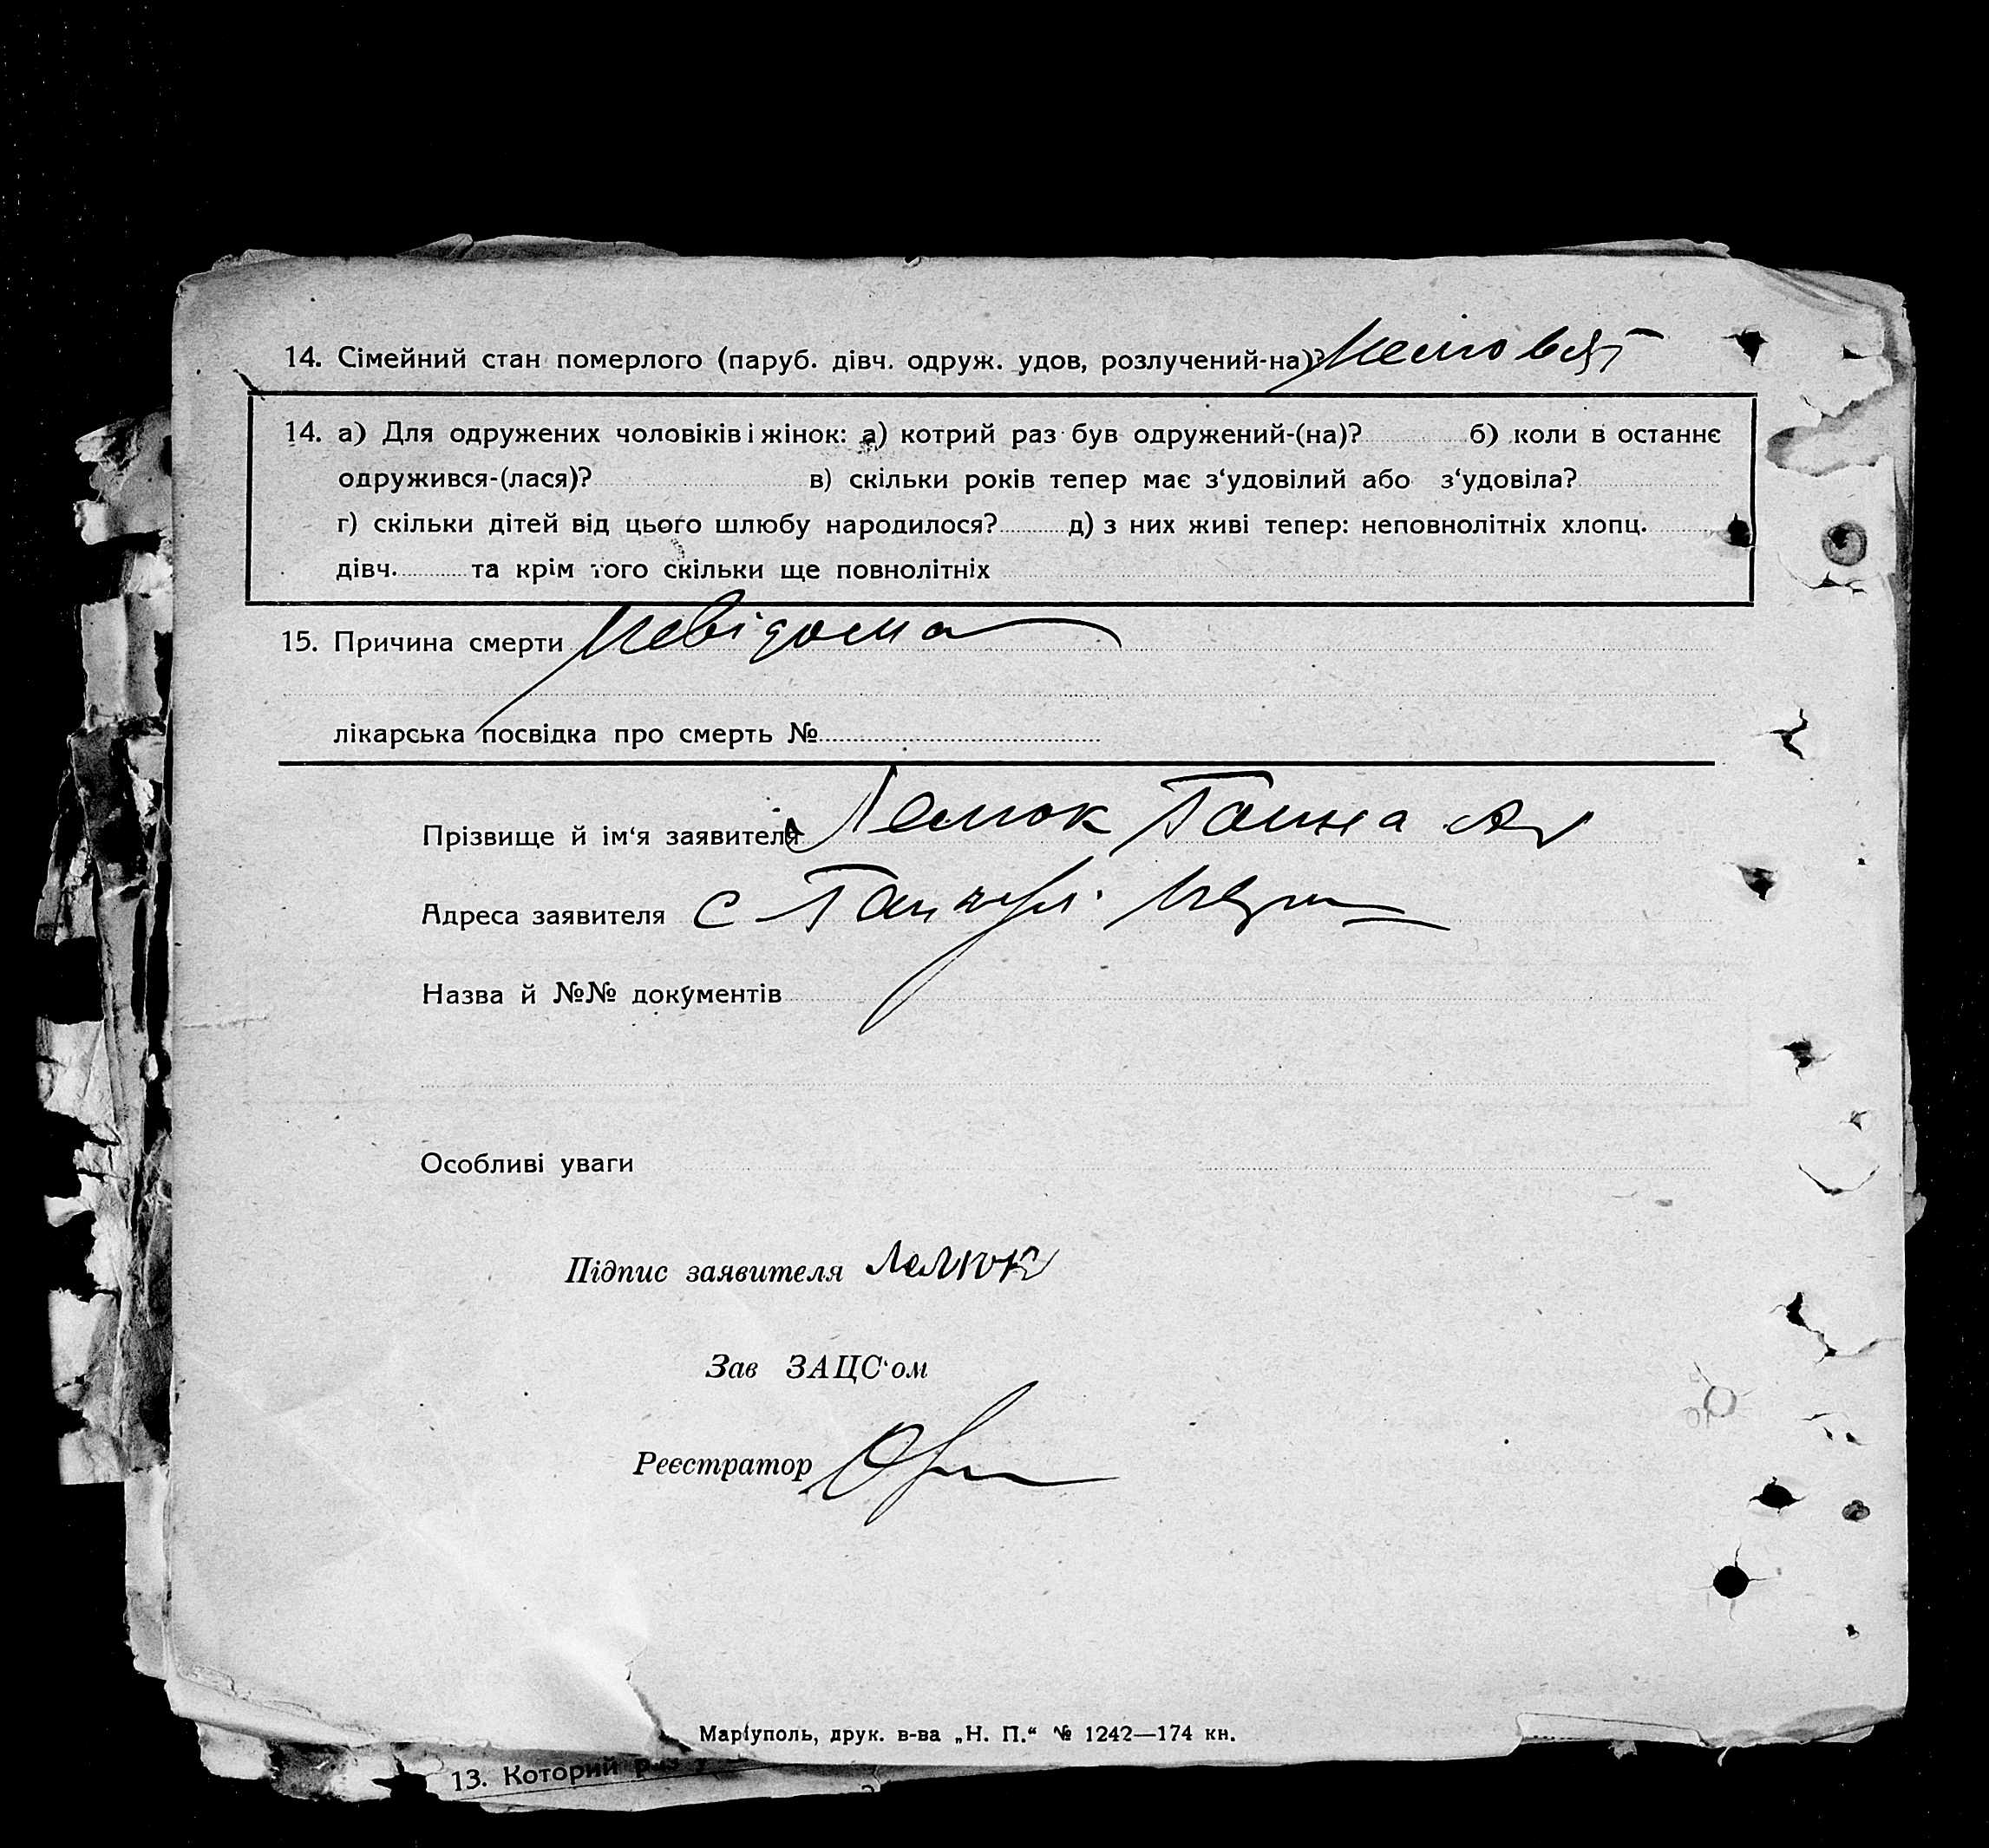 14. Сімейний стан померлого (паруб. дівч. одруж. удов, розлучений-на)?
14. а) Для одружених чоловіків і жінок: а) котрий раз був одружений-(на)? б) коли в останнє
одружився-(лася)? в) скільки років тепер має з‘удовілий або з‘удовіла?
г) скільки дітей від цього шлюбу народилося? д) з них живі тепер: неповнолітніх хлопц.
дівч. та крім того скільки ще повнолітніх
15. Причина смерти невідома
лікарська посвідка про смерть №
Прізвище й ім‘я заявителя Лемюк Ганна
Адреса заявителя с
Назва й №№ документів
Особливі уваги
Підпис заявителя Лемюк
Зав ЗАЦС‘ом
Реєстратор
Маріуполь, друк. в-ва „Н. П.“ № 1242—174 кн.
13. Которий раз